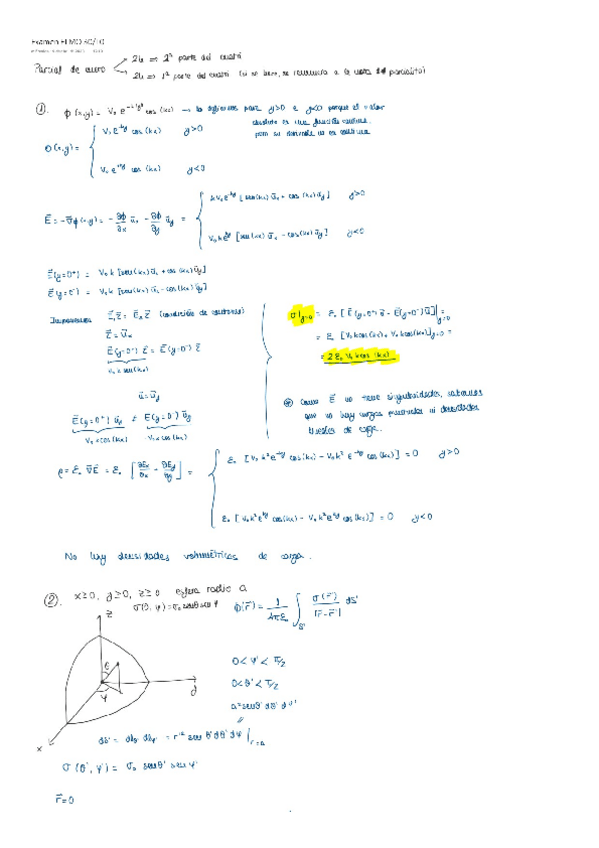 Examen ELMO 30/10
Parcial de euro
2h ⇒ 2ª parte del cuatri
2h ⇒ 1ª parte del cuatri
①. ϕ(x,y) = V₀ e^{-k|y|} cos(kx) → lo definimos para y>0 e y<0 porque el valor
absoluto es una función continua,
pero su derivada no es continua
ϕ(x,y) = { V₀ e^{-ky} cos(kx) y>0
V₀ e^{+ky} cos(kx) y<0
E = -∇ϕ(x,y) = -∂ϕ/∂x u_x - ∂ϕ/∂y u_y = { k V₀ e^{-ky} [sen(kx) u_x + cos(kx) u_y] y>0
V₀ k e^{ky} [sen(kx) u_x - cos(kx) u_y] y<0
E(y=0⁺) = V₀ k [sen(kx) u_x + cos(kx) u_y]
E(y=0⁻) = V₀ k [sen(kx) u_x - cos(kx) u_y]
(condición de contorno)
σ|_{y=0} = ε₀ [E(y=0⁺) u - E(y=0⁻) u]|_{y=0} =
= ε₀ [V₀ k cos(kx) + V₀ k cos(kx)]_{y=0} =
= 2 ε₀ V₀ k cos(kx)
E(y=0⁺) τ = E(y=0⁻) τ
V₀ k sen(kx)
E(y=0⁺) u_y ≠ E(y=0⁻) u_y
V₀ k cos(kx) V₀ k cos(kx)
⊛ Como E no tiene singularidades, sabemos
que no hay cargas puntuales ni densidades
lineales de carga.
ρ = ε₀ ∇E = ε₀ [∂E_x/∂x + ∂E_y/∂y] = { ε₀ [V₀ k² e^{-ky} cos(kx) - V₀ k² e^{-ky} cos(kx)] = 0 y>0
ε₀ [V₀ k² e^{ky} cos(kx) - V₀ k² e^{ky} cos(kx)] = 0 y<0
No hay densidades volumétricas de carga.
②. x≥0, y≥0, z≥0 esfera radio a
σ(θ, φ) = σ₀ senθ sen φ
ϕ(r) = 1/(4πε₀) ∫_{S'} σ(r')/|r-r'| dS'
z
θ
φ
y
x
0 < φ' < π/2
0 < θ' < π/2
a² senθ' dθ' dφ'
dS' = dl_θ dl_φ = r'² sen θ' dθ' dφ'|_{r=a}
σ(θ', φ') = σ₀ senθ' sen φ'
r = 0